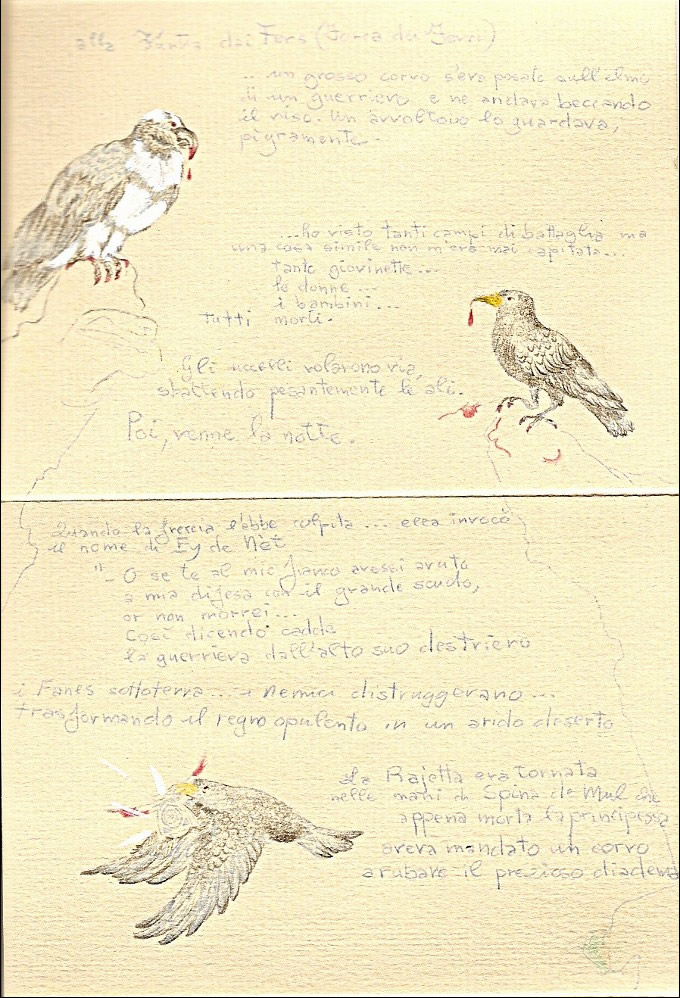 alla Fúrĉia dai Fers (Forca dei Ferri)
.. un grosso corvo s'era posato sull'elmo
di un guerriero e ne andava beccando
il viso. Un avvoltoio lo guardava,
pigramente.
...ho visto tanti campi di battaglia ma
una cosa simile non m'era mai capitata...
tante giovinette...
le donne...
i bambini...
tutti morti.
Gli uccelli volarono via,
sbattendo pesantemente le ali.
Poi, venne la notte.
Quando la freccia l'ebbe colpita ... essa invocò
il nome di Ey de Nèt
"- O se te al mio fianco avessi avuto
a mia difesa con il grande scudo,
or non morrei...
Così dicendo cadde
la guerriera dall'alto suo destriero
i Fanes sottoterra... i nemici distruggerano...
trasformando il regno opulento in un arido deserto
La Rajetta era tornata
nelle mani di Spina de Mul che
appena morta la principessa
aveva mandato un corvo
a rubare il prezioso diadema